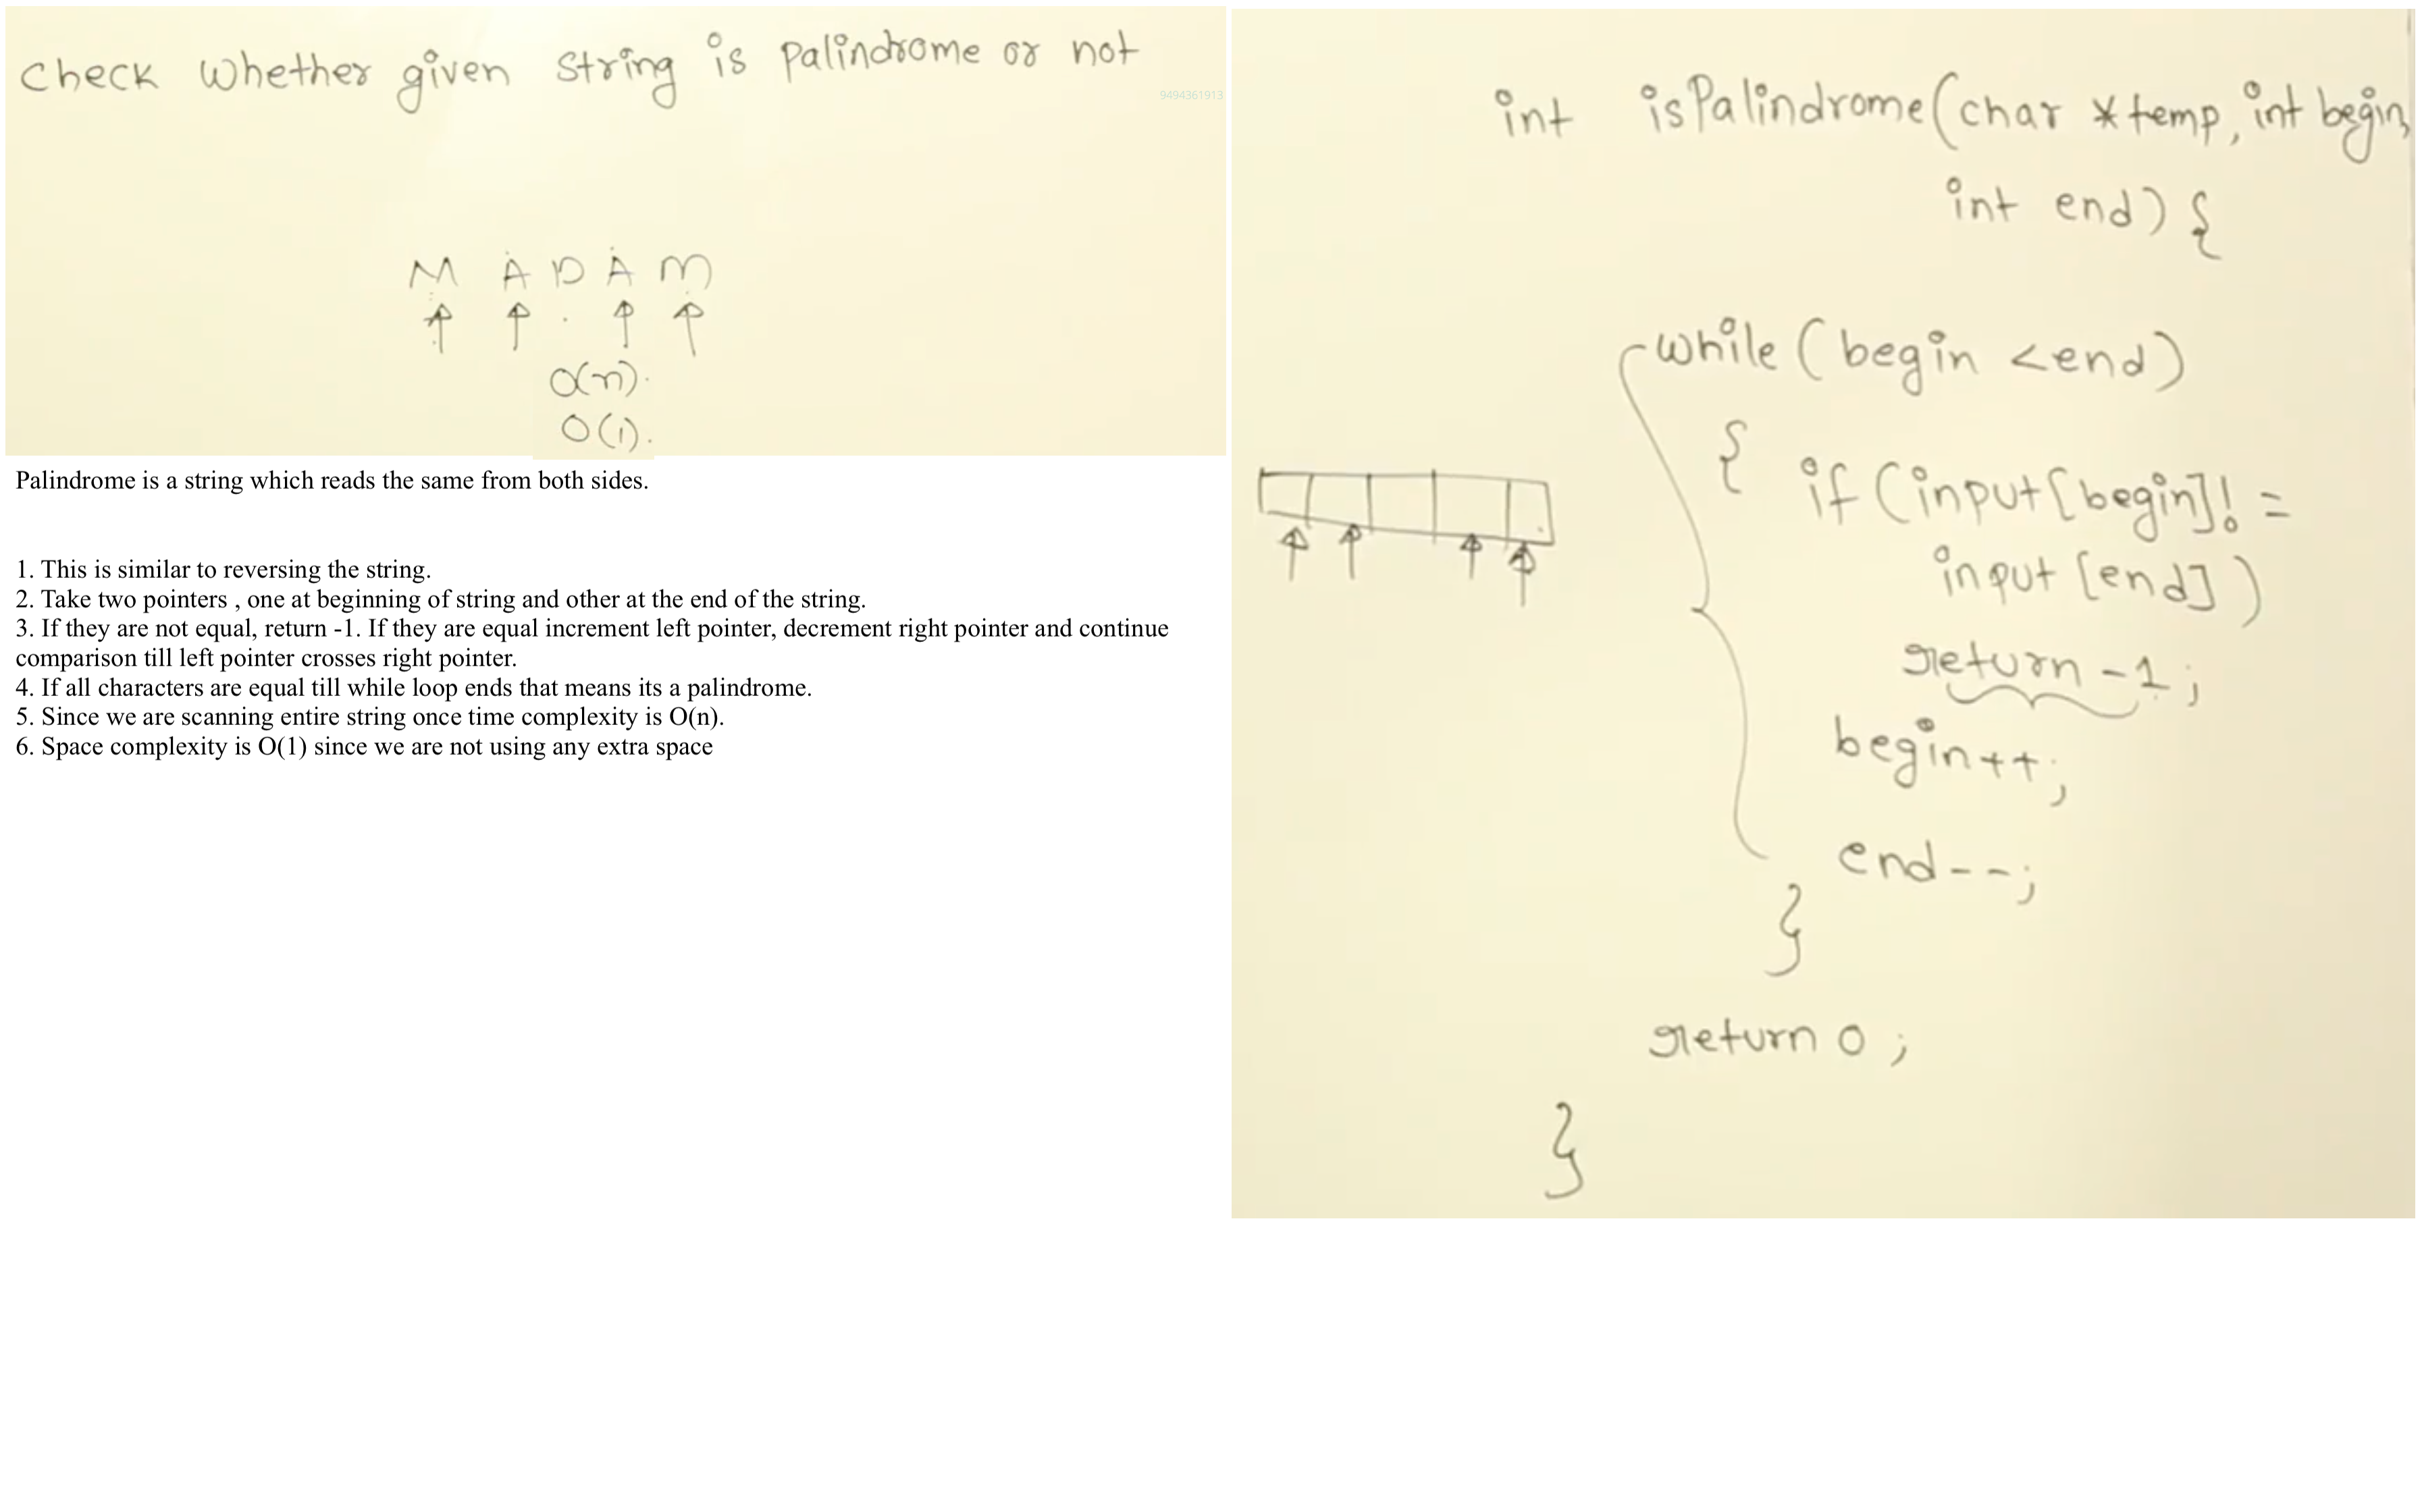 Check Whether given String is Palindrome or not
9494361913
M A D A M
O(n).
O(1).
Palindrome is a string which reads the same from both sides.
1. This is similar to reversing the string.
2. Take two pointers , one at beginning of string and other at the end of the string.
3. If they are not equal, return -1. If they are equal increment left pointer, decrement right pointer and continue
comparison till left pointer crosses right pointer.
4. If all characters are equal till while loop ends that means its a palindrome.
5. Since we are scanning entire string once time complexity is O(n).
6. Space complexity is O(1) since we are not using any extra space
int isPalindrome(char *temp, int begin,
int end) {
while (begin <end)
{ if (input[begin]! =
input [end])
return -1;
begin++;
end--;
}
return 0;
}